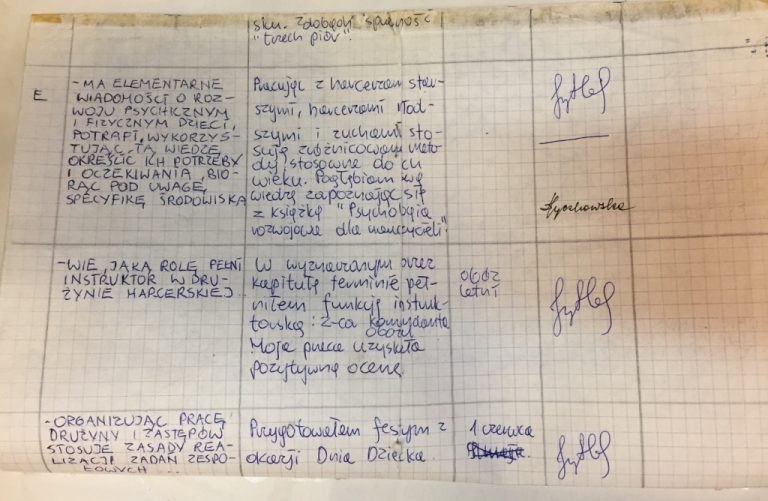 sku. Zdobądź sprawność
"trzech piór".
E
- MA ELEMENTARNE
WIADOMOŚCI O ROZ-
WOJU PSYCHICZNYM
I FIZYCZNYM DZIECI,
POTRAFI, WYKORZYS-
TUJĄC TĄ WIEDZĘ
OKREŚLIĆ ICH POTRZEBY
I OCZEKIWANIA, BIO-
RĄC POD UWAGĘ,
SPECYFIKĘ ŚRODOWISKA
Pracując z harcerzami star-
szymi, harcerzami młod-
szymi i zuchami sto-
suję zróżnicowane meto-
dy, stosowne do ich
wieku. Pogłębiam swą
wiedzę zapoznając się
z książką "Psychologia
rozwojowa dla nauczycieli".
- WIE, JAKĄ ROLĘ PEŁNI
INSTRUKTOR W DRU-
ŻYNIE HARCERSKIEJ...
W wyznaczonym przez
kapitułę terminie peł-
niłem funkcję instruk-
torską: z-ca komendanta
obozu
Moja praca uzyskała
pozytywną ocenę.
obóz
letni
- ORGANIZUJĄC PRACĘ
DRUŻYNY I ZASTĘPÓW
STOSUJE ZASADY REA-
LIZACJI ZADAŃ ZESPO-
ŁOWYCH ...
Przygotowałem festyn z
okazji Dnia Dziecka.
1 czerwca